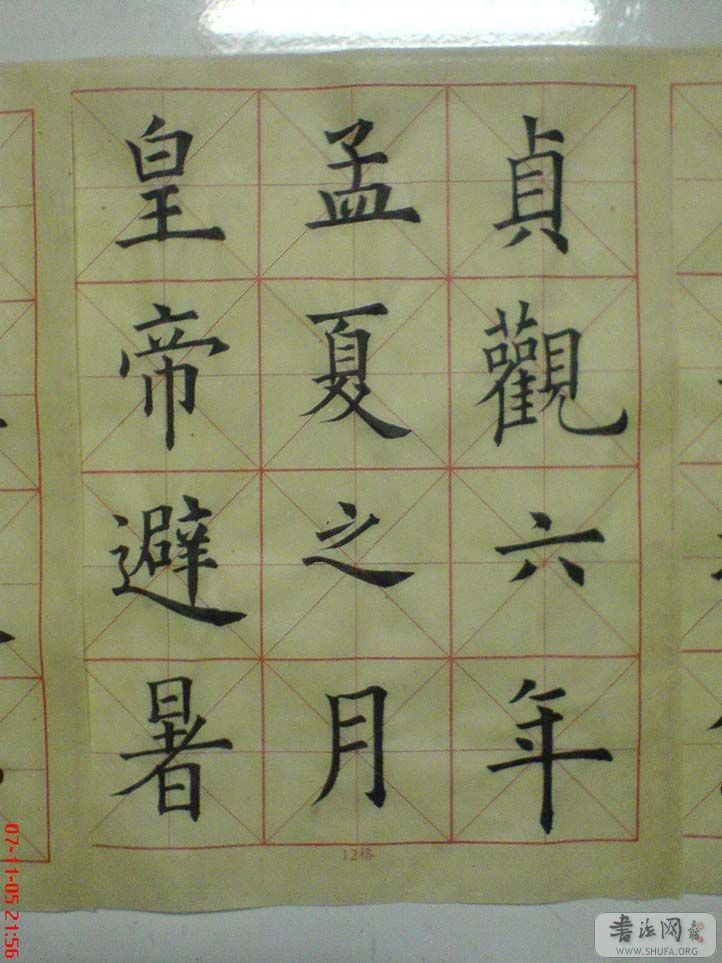 貞觀六年
孟夏之月
皇帝避暑
12格
07-11-05 21:56
书法网
WWW.SHUFA.ORG